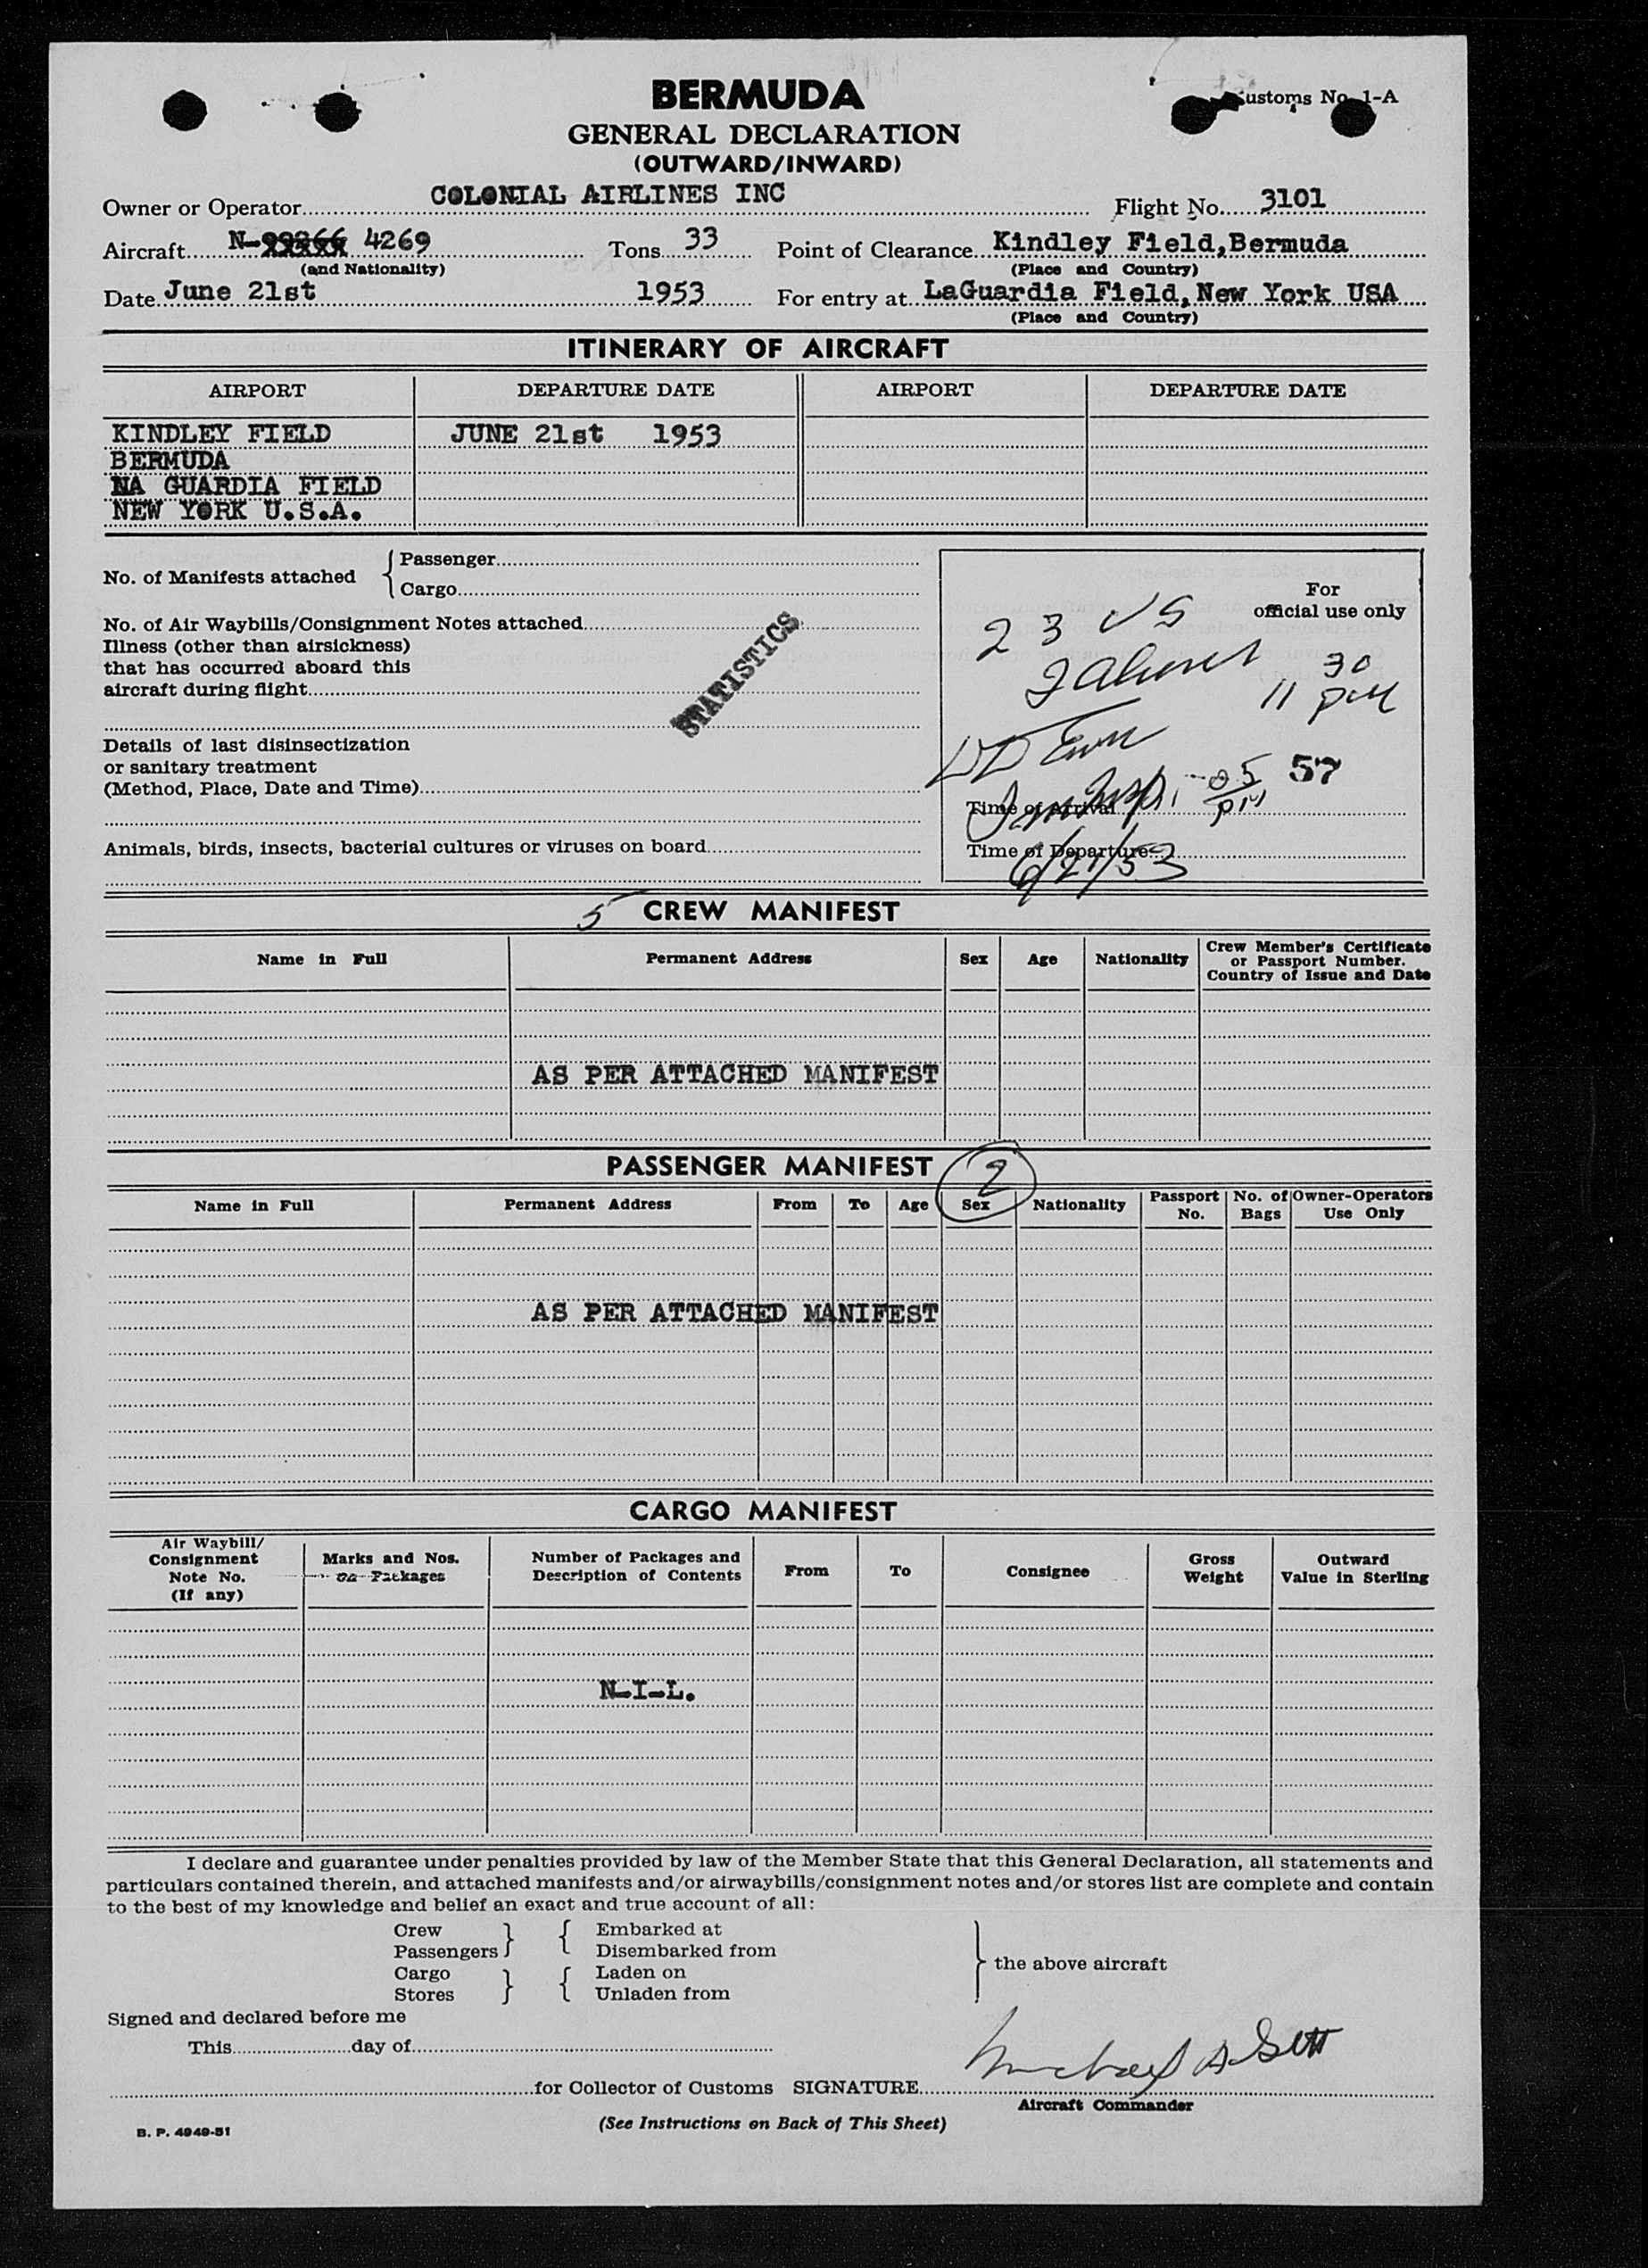 BERMUDA
Customs No. 1-A
GENERAL DECLARATION
(OUTWARD/INWARD)
Owner or Operator COLONIAL AIRLINES INC Flight No. 3101
Aircraft N- 4269 Tons 33 Point of Clearance Kindley Field,Bermuda
(and Nationality) (Place and Country)
Date June 21st 1953 For entry at LaGuardia Field,New York USA
(Place and Country)
ITINERARY OF AIRCRAFT
AIRPORT DEPARTURE DATE AIRPORT DEPARTURE DATE
KINDLEY FIELD JUNE 21st 1953
BERMUDA
NA GUARDIA FIELD
NEW YORK U.S.A.
No. of Manifests attached { Passenger
Cargo
No. of Air Waybills/Consignment Notes attached
Illness (other than airsickness)
that has occurred aboard this
aircraft during flight
STATISTICS
Details of last disinsectization
or sanitary treatment
(Method, Place, Date and Time)
Animals, birds, insects, bacterial cultures or viruses on board
For
official use only
23 US
2 aliens 30
11 pm
05 57
Time of Arrival PM
Time of Departure
6/21/53
5 CREW MANIFEST
Name in Full Permanent Address Sex Age Nationality Crew Member's Certificate
or Passport Number.
Country of Issue and Date
AS PER ATTACHED MANIFEST
PASSENGER MANIFEST 2
Name in Full Permanent Address From To Age Sex Nationality Passport No. No. of Bags Owner-Operators Use Only
AS PER ATTACHED MANIFEST
CARGO MANIFEST
Air Waybill/
Consignment
Note No.
(If any)
Marks and Nos.
on Packages
Number of Packages and
Description of Contents
From To Consignee Gross Weight Outward Value in Sterling
N-I-L.
I declare and guarantee under penalties provided by law of the Member State that this General Declaration, all statements and
particulars contained therein, and attached manifests and/or airwaybills/consignment notes and/or stores list are complete and contain
to the best of my knowledge and belief an exact and true account of all:
Crew } { Embarked at
Passengers Disembarked from
Cargo } { Laden on
Stores Unladen from
} the above aircraft
Signed and declared before me
This day of
for Collector of Customs SIGNATURE Michael
Aircraft Commander
(See Instructions on Back of This Sheet)
B. P. 4949-51